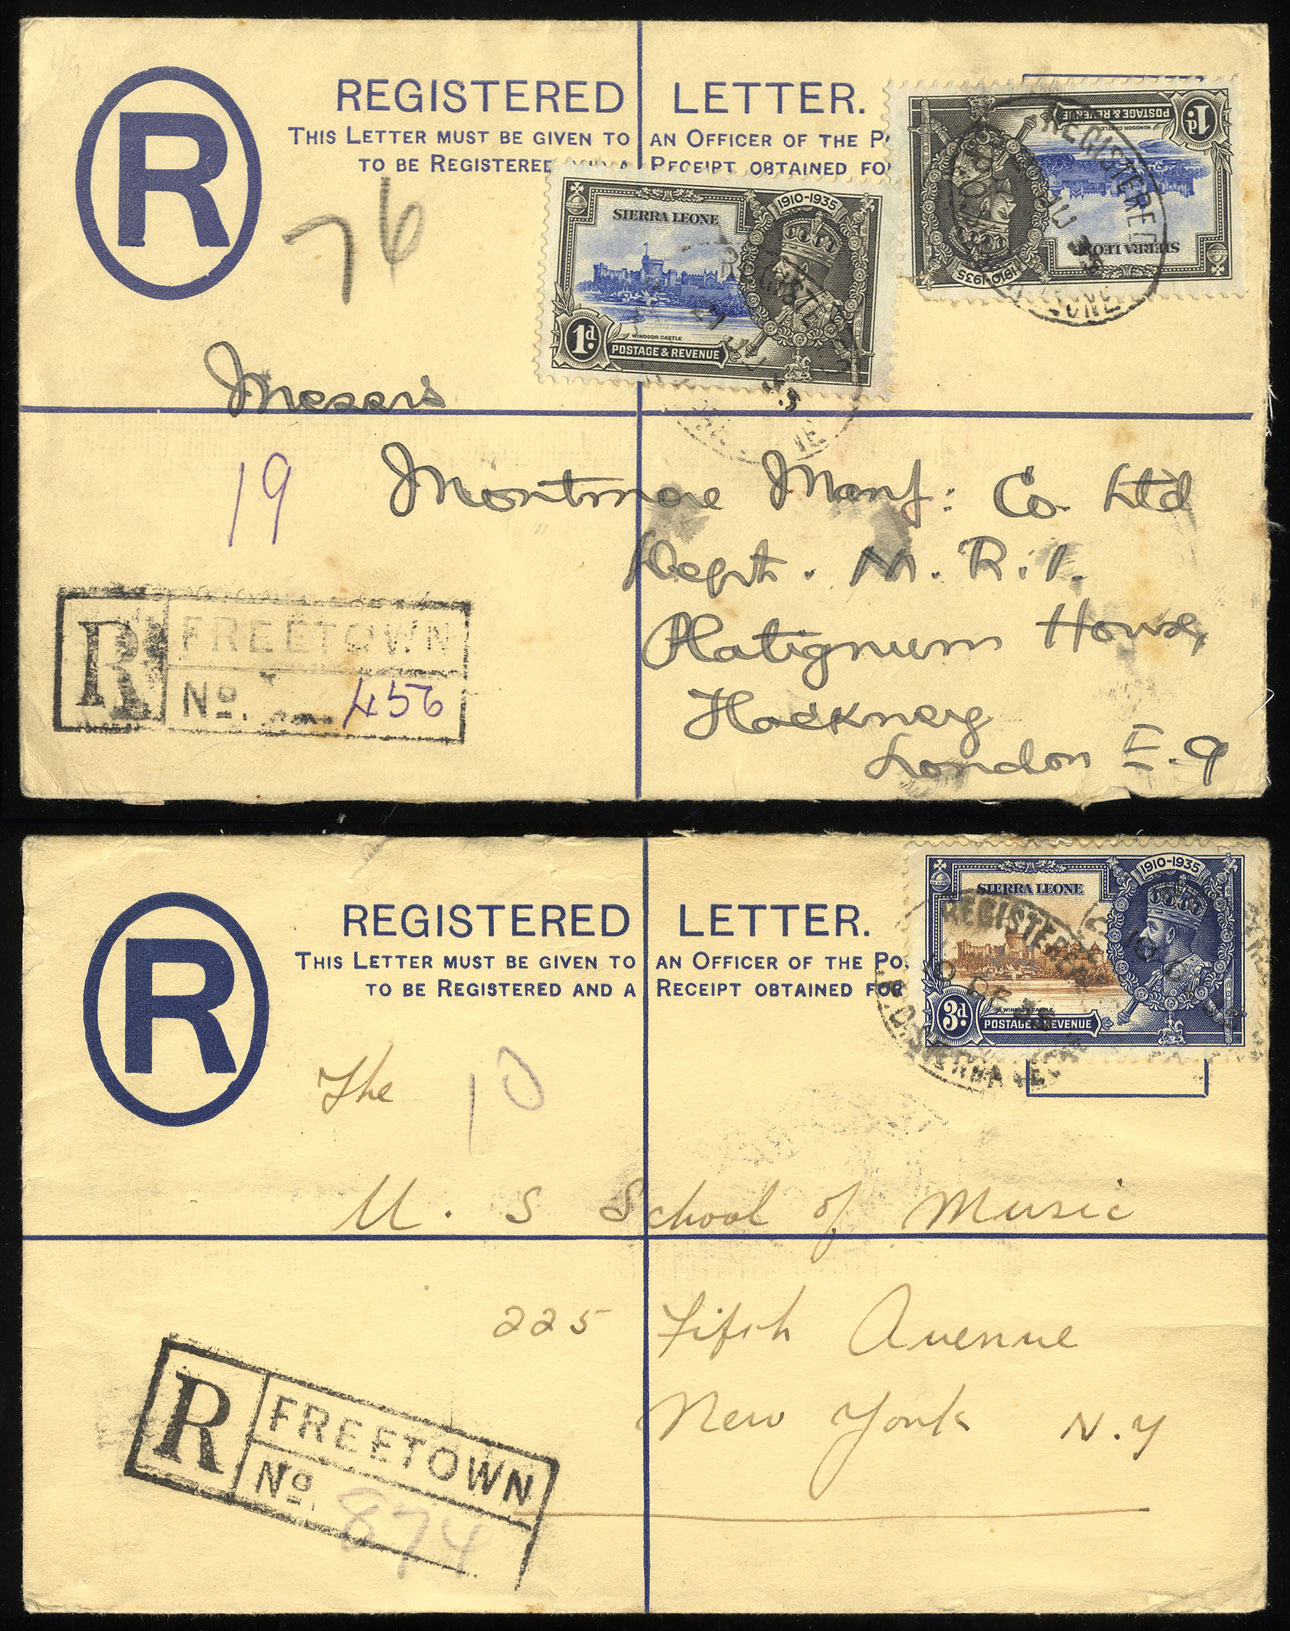 R
REGISTERED LETTER.
THIS LETTER MUST BE GIVEN TO AN OFFICER OF THE P
TO BE REGISTERED RECEIPT OBTAINED FO
1910-1935
SIERRA LEONE
WINDSOR CASTLE
1d.
POSTAGE & REVENUE
REGISTERED
1910-1935
SIERRA LEONE
WINDSOR CASTLE
1d.
POSTAGE & REVENUE
REGISTERED
76
Messrs
19
Montmore Manf: Co. Ltd
Dept. M. R. 1.
Platignum House,
Hackney
London E.9
R FREETOWN
No. 456
R
REGISTERED LETTER.
THIS LETTER MUST BE GIVEN TO AN OFFICER OF THE PO
TO BE REGISTERED AND A RECEIPT OBTAINED FOR
1910-1935
SIERRA LEONE
WINDSOR CASTLE
3d.
POSTAGE & REVENUE
REGISTERED
10 DE 35
G.P.O. SIERRA LEONE
The
10
U. S School of Music
225 Fifth Avenue
New York N.Y
R FREETOWN
No. 874